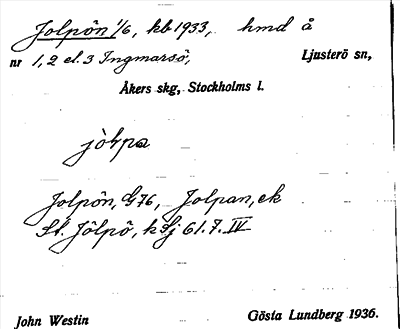 Jolpön 1/6, kb 1933, hmd å
nr 1, 2 el. 3 Ingmarsö, Ljusterö sn,
Åkers skg, Stockholms l.
Jolpön, G76, Jolpan, ek
St. Jölpö, k Sj 61.7. IV
John Westin Gösta Lundberg 1936.